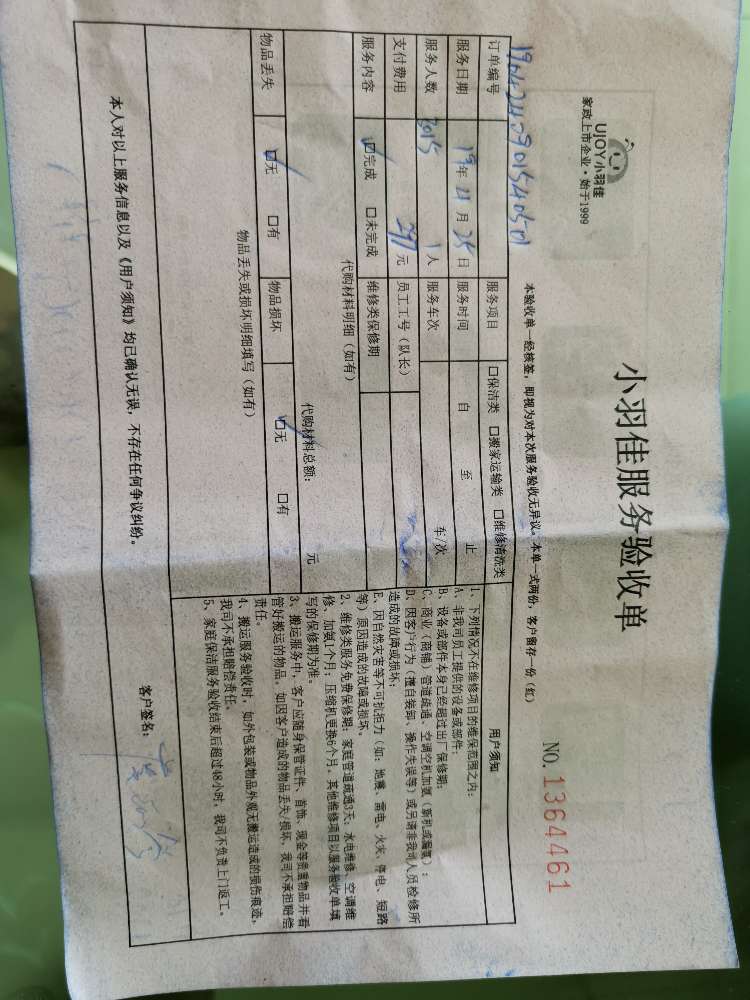 UJOY小羽佳
家政上市企业·始于1999
小羽佳服务验收单
NO. 1364461
本验收单一经核签，即视为对本次服务验收无异议。本单一式两份，客户留存一份（红）
订单编号
服务项目 口保洁类 口搬家运输类 口维修清洗类
服务日期 19年4月25日 服务时间 自 至 止
服务人数 1人 服务车次 车/次
支付费用 297元 员工工号（队长）
服务内容 口完成 口未完成 维修类保修期
代购材料明细（如有）
代购材料总额： 元
物品丢失 口无 口有 物品损坏 口无 口有
物品丢失或损坏明细填写（如有）
用户须知
1、下列情况不在维修项目的维保范围之内：
A、非我司员工提供的设备或部件；
B、设备或部件本身已经超过出厂保修期；
C、商业（商铺）管道疏通、空调空机加氨（新机或漏氨）；
D、因客户行为（擅自装卸、操作失误等）或另请非我司人员检修所
造成的故障或损坏；
E、因自然灾害等不可抗拒力（如：地震、雷电、火灾、停电、短路
等）原因造成的故障或损坏。
2、维修类服务免费保修期：家庭管道疏通3天；水电维修、空调维
修、加氨1个月；压缩机更换6个月，其他维修项目以服务验收单填
写的保修期为准。
3、搬运服务中，客户应随身保管证件、首饰、现金等贵重物品并看
管好搬运的物品。如因客户造成的物品丢失/损坏，我司不承担赔偿
责任。
4、搬运服务验收时，如外包装或物品外观无搬运造成的损伤痕迹，
我司不承担赔偿责任。
5、家庭保洁服务验收结束后超过48小时，我司不负责上门返工。
本人对以上服务信息以及《用户须知》均已确认无误，不存在任何争议纠纷。
客户签名：